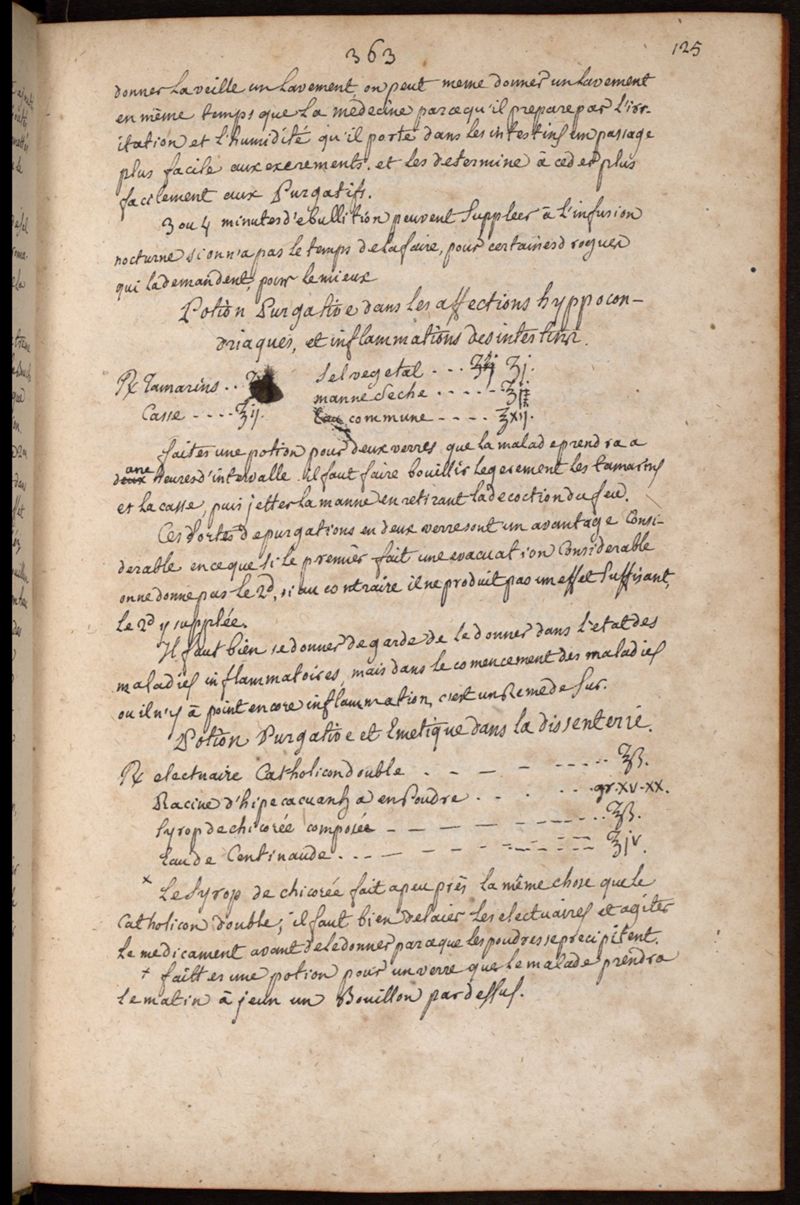 363
125
donner la veille un Lavement, on peut meme donner un Lavement
en même temps que La médecine parcequ'il prepare par L'irr-
itation et L'humidité qu'il porte dans les intestins un passage
plus facile aux excrements. et les determine à ceder plus
facilement aux Purgatifs.
3 ou 4 minutes d'ebullition peuvent Suppleer à L'infusion
nocturne si on n'a pas le temps de la faire, pour certaines drogues
qui la demandent, pour le mieux
Potion Purgative dans les affections hyppocon-
driaques, et inflammations des intestins.
℞ Tamarins . . ʒ
Sel vegetal . . . ʒj.
Casse . . . . ℥ij.
manne Seche . . . . . ℥ij
Eau commune . . . . ℥xij.
faites une potion pour deux verres que la malade prendra a
une
deux heures d'intervalle. il faut faire bouillir legerement les tamarins
et la casse, puis jetter la manne en retirant la decoction du feu.
Ces sortes de purgations en deux verres ont un avantage Consi-
derable en ce que si le premier fait une evacuation Considerable
on ne donne pas le 2d, si au contraire il ne produit pas un effet Suffisant,
le 2d y supplée.
Il faut bien se donner de garde de le donner dans l'etat des
maladies inflammatoires, mais dans le comencement des maladies
ou il n'y à point encore inflammation, c'est un Remede Sur.
Potion Purgative et Emetique dans la dissenterie.
℞ electuaire Catholicon double . - - - . . . . . ℥ß.
Racine d'hipecacuanha en Poudre . . . . . gr. XV-XX.
Syrop de chicorée composée - - - - - . . . . ℥ß.
Eau de Centinaude . . . - - - - - - - ℥iv.
× Le Syrop de chicorée fait a peu près la même chose que le
Catholicon double; il faut bien delaier les electuaires et agiter
le medicament avant de le donner parceque les poudres se precipitent.
+ faittes une potion pour un verre que le malade prendra
le matin à jeun un Bouillon par dessus.